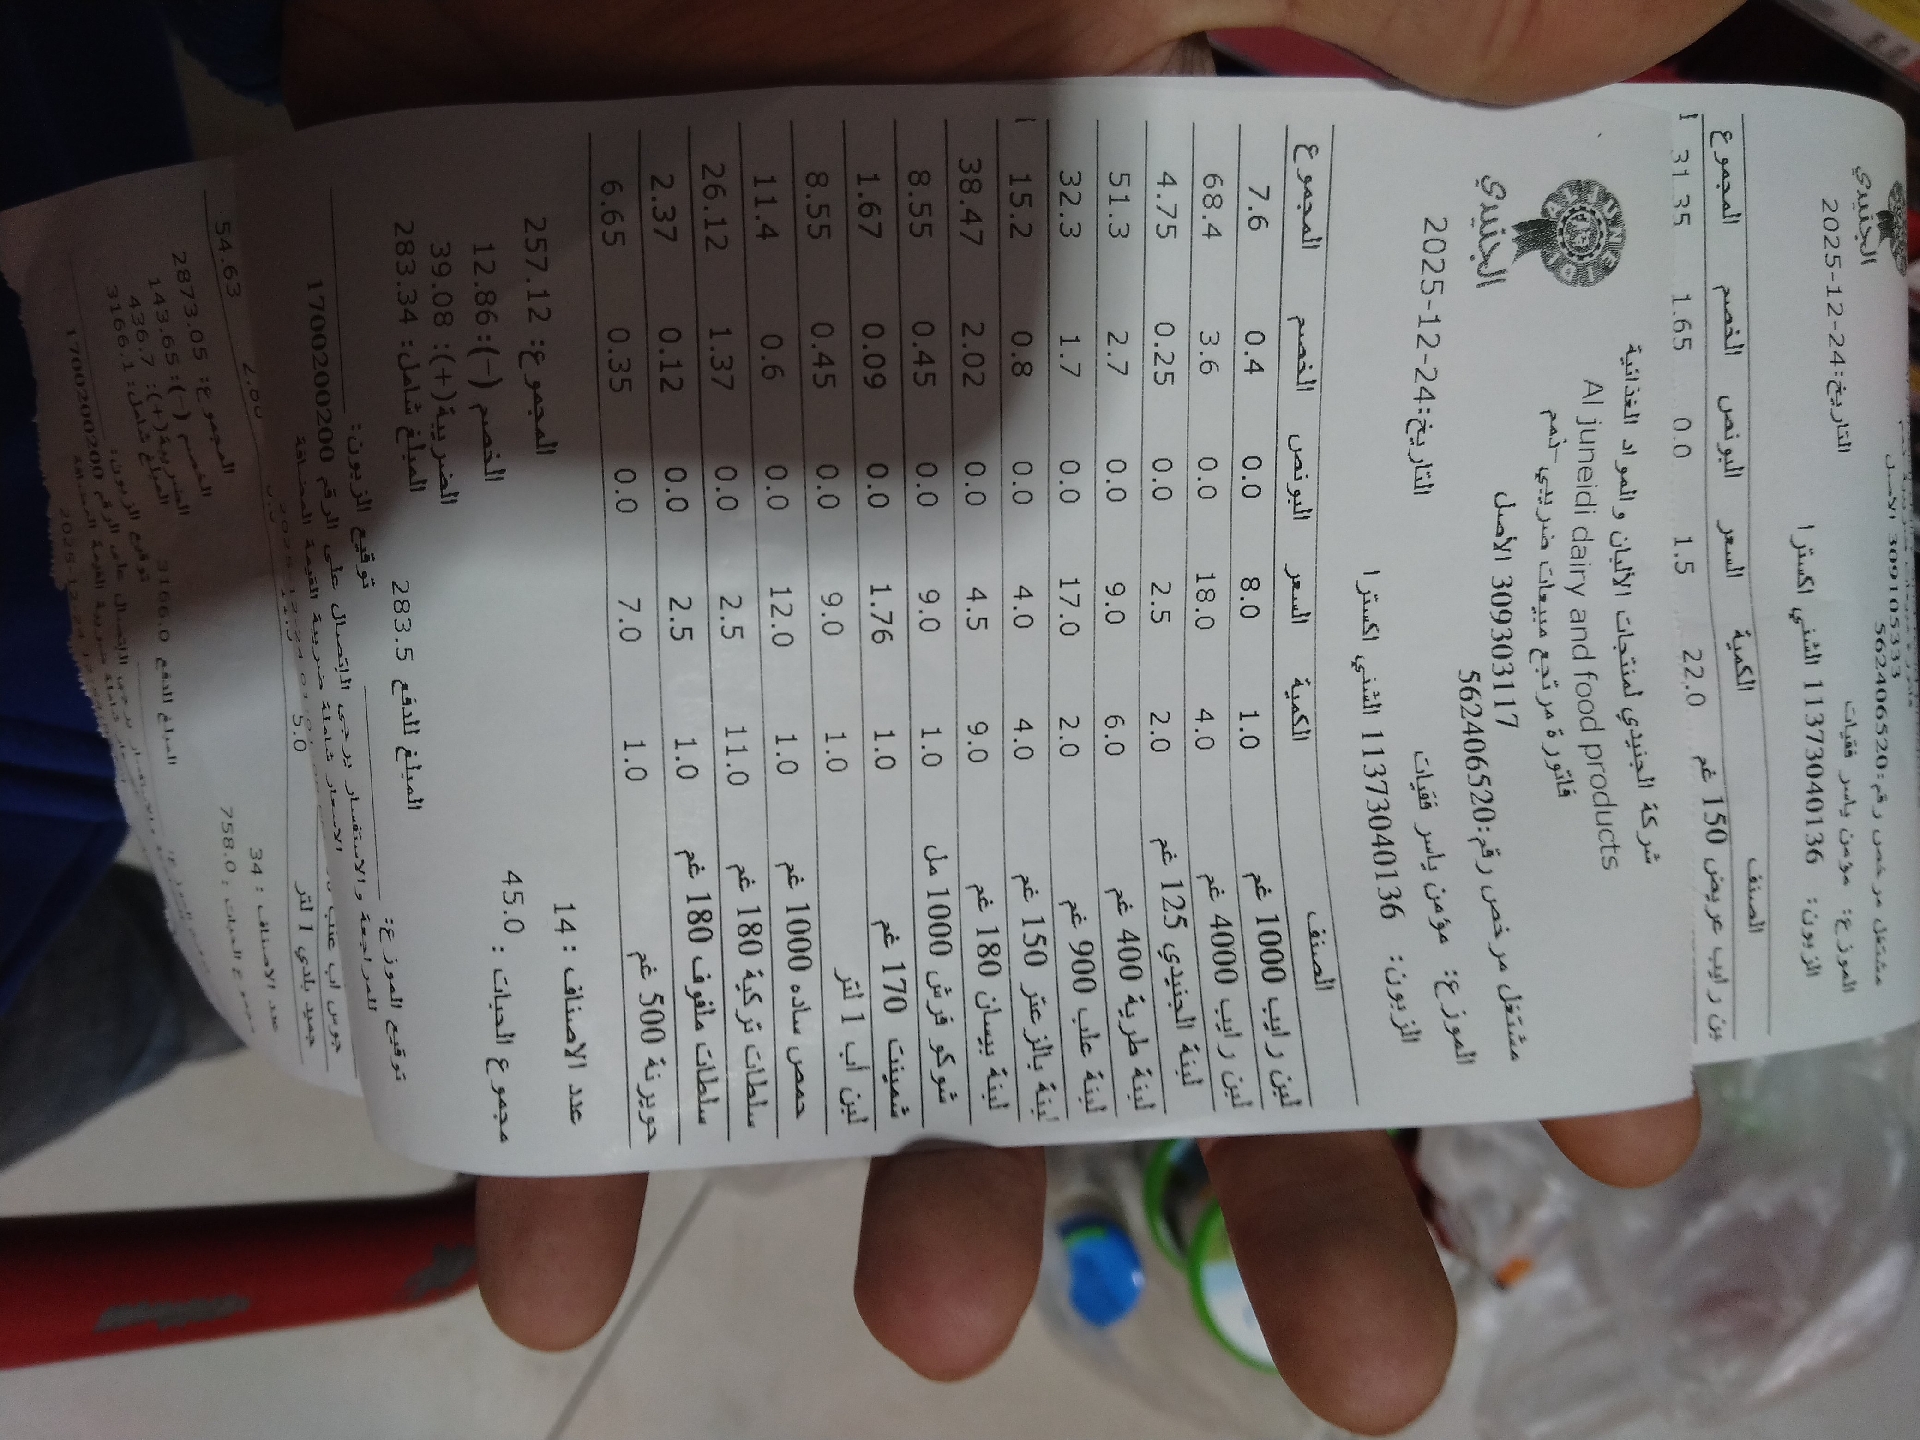 مشتغل مرخص رقم:562406520
الموزع: مؤمن ياسر فقيات
الزبون: 1137304013​6 الشني اكسترا
الجنيدي
التاريخ:2025-12-24
الصنف الكمية السعر البونص الخصم المجموع
رايب عريض 150 غم 22.0 1.5 0.0 1.65 31.35
شركة الجنيدي لمنتجات الألبان والمواد الغذائية
Al juneidi dairy and food products
فاتورة مرتجع مبيعات ضريبي -ذمم
309303117 الأصل
الجنيدي
مشتغل مرخص رقم:562406520
الموزع: مؤمن ياسر فقيات
التاريخ:2025-12-24
الزبون: 11373040136 الشني اكسترا
الصنف الكمية السعر البونص الخصم المجموع
لبن رايب 1000 غم 1.0 8.0 0.0 0.4 7.6
لبن رايب 4000 غم 4.0 18.0 0.0 3.6 68.4
لبنة الجنيدي 125 غم 2.0 2.5 0.0 0.25 4.75
لبنة طرية 400 غم 6.0 9.0 0.0 2.7 51.3
لبنة علب 900 غم 2.0 17.0 0.0 1.7 32.3
لبنة بالزعتر 150 غم 4.0 4.0 0.0 0.8 15.2
لبنة بيسان 180 غم 9.0 4.5 0.0 2.02 38.47
شوكو فرش 1000 مل 1.0 9.0 0.0 0.45 8.55
شمينت 170 غم 1.0 1.76 0.0 0.09 1.67
لبن أب 1 لتر 1.0 9.0 0.0 0.45 8.55
حمص ساده 1000 غم 1.0 12.0 0.0 0.6 11.4
سلطات تركية 180 غم 11.0 2.5 0.0 1.37 26.12
سلطات ملفوف 180 غم 1.0 2.5 0.0 0.12 2.37
حويرنة 500 غم 1.0 7.0 0.0 0.35 6.65
عدد الاصناف : 14
المجموع: 257.12
مجموع الحبات : 45.0
الخصم (-): 12.86
الضريبة(+): 39.08
المبلغ شامل: 283.34
المبلغ الدفع 283.5
توقيع الموزع:
توقيع الزبون:
للمراجعة والاستفسار يرجى الاتصال على الرقم 1700200200
الاسعار شاملة ضريبة القيمة المضافة
جميد بلدي 1 لتر 5.0
54.63
عدد الاصناف : 34
المجموع: 2873.05
مجموع الحبات : 758.0
الخصم (-): 143.65
الضريبة(+): 436.7
المبلغ شامل: 3166.1
المبلغ الدفع 3166.0
توقيع الزبون: